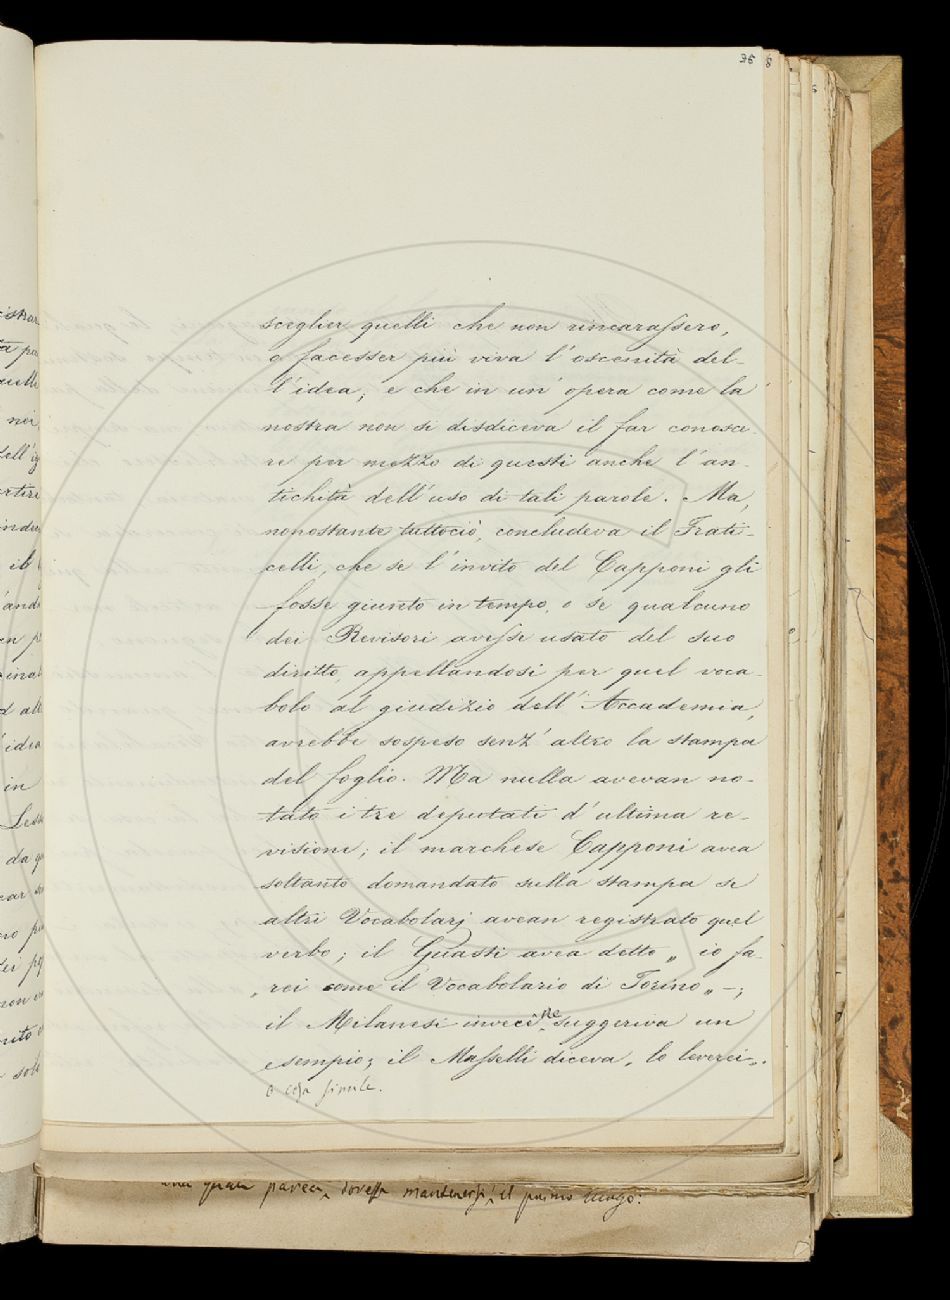 sceglier quelli che non rincarassero,
o facesser più viva l'oscenità del-
l'idea; e che in un' opera come la
nostra non si disdiceva il far conosce-
re per mezzo di questi anche l'an-
tichità dell'uso di tali parole. Ma,
nonostante tuttociò, concludeva il Frati-
celli, che se l'invito del Capponi gli
fosse giunto in tempo, o se qualcuno
dei Revisori avesse usato del suo
diritto, appellandosi per quel voca-
bolo al giudizio dell'Accademia,
avrebbe sospeso senz' altro la stampa
del foglio. Ma nulla avevan no-
tato i tre deputati d'ultima re-
visione; il marchese Capponi avea
soltanto domandato sulla stampa se
altri Vocabolarj avean registrato quel
verbo; il Guasti avea detto „ io fa-
„ rei come il Vocabolario di Torino „ –;
il Milanesi invece ne suggeriva un
esempio; il Masselli diceva „ lo leverei „.
o cosa simile.
parea, dovesse mantenersi il primo luogo.